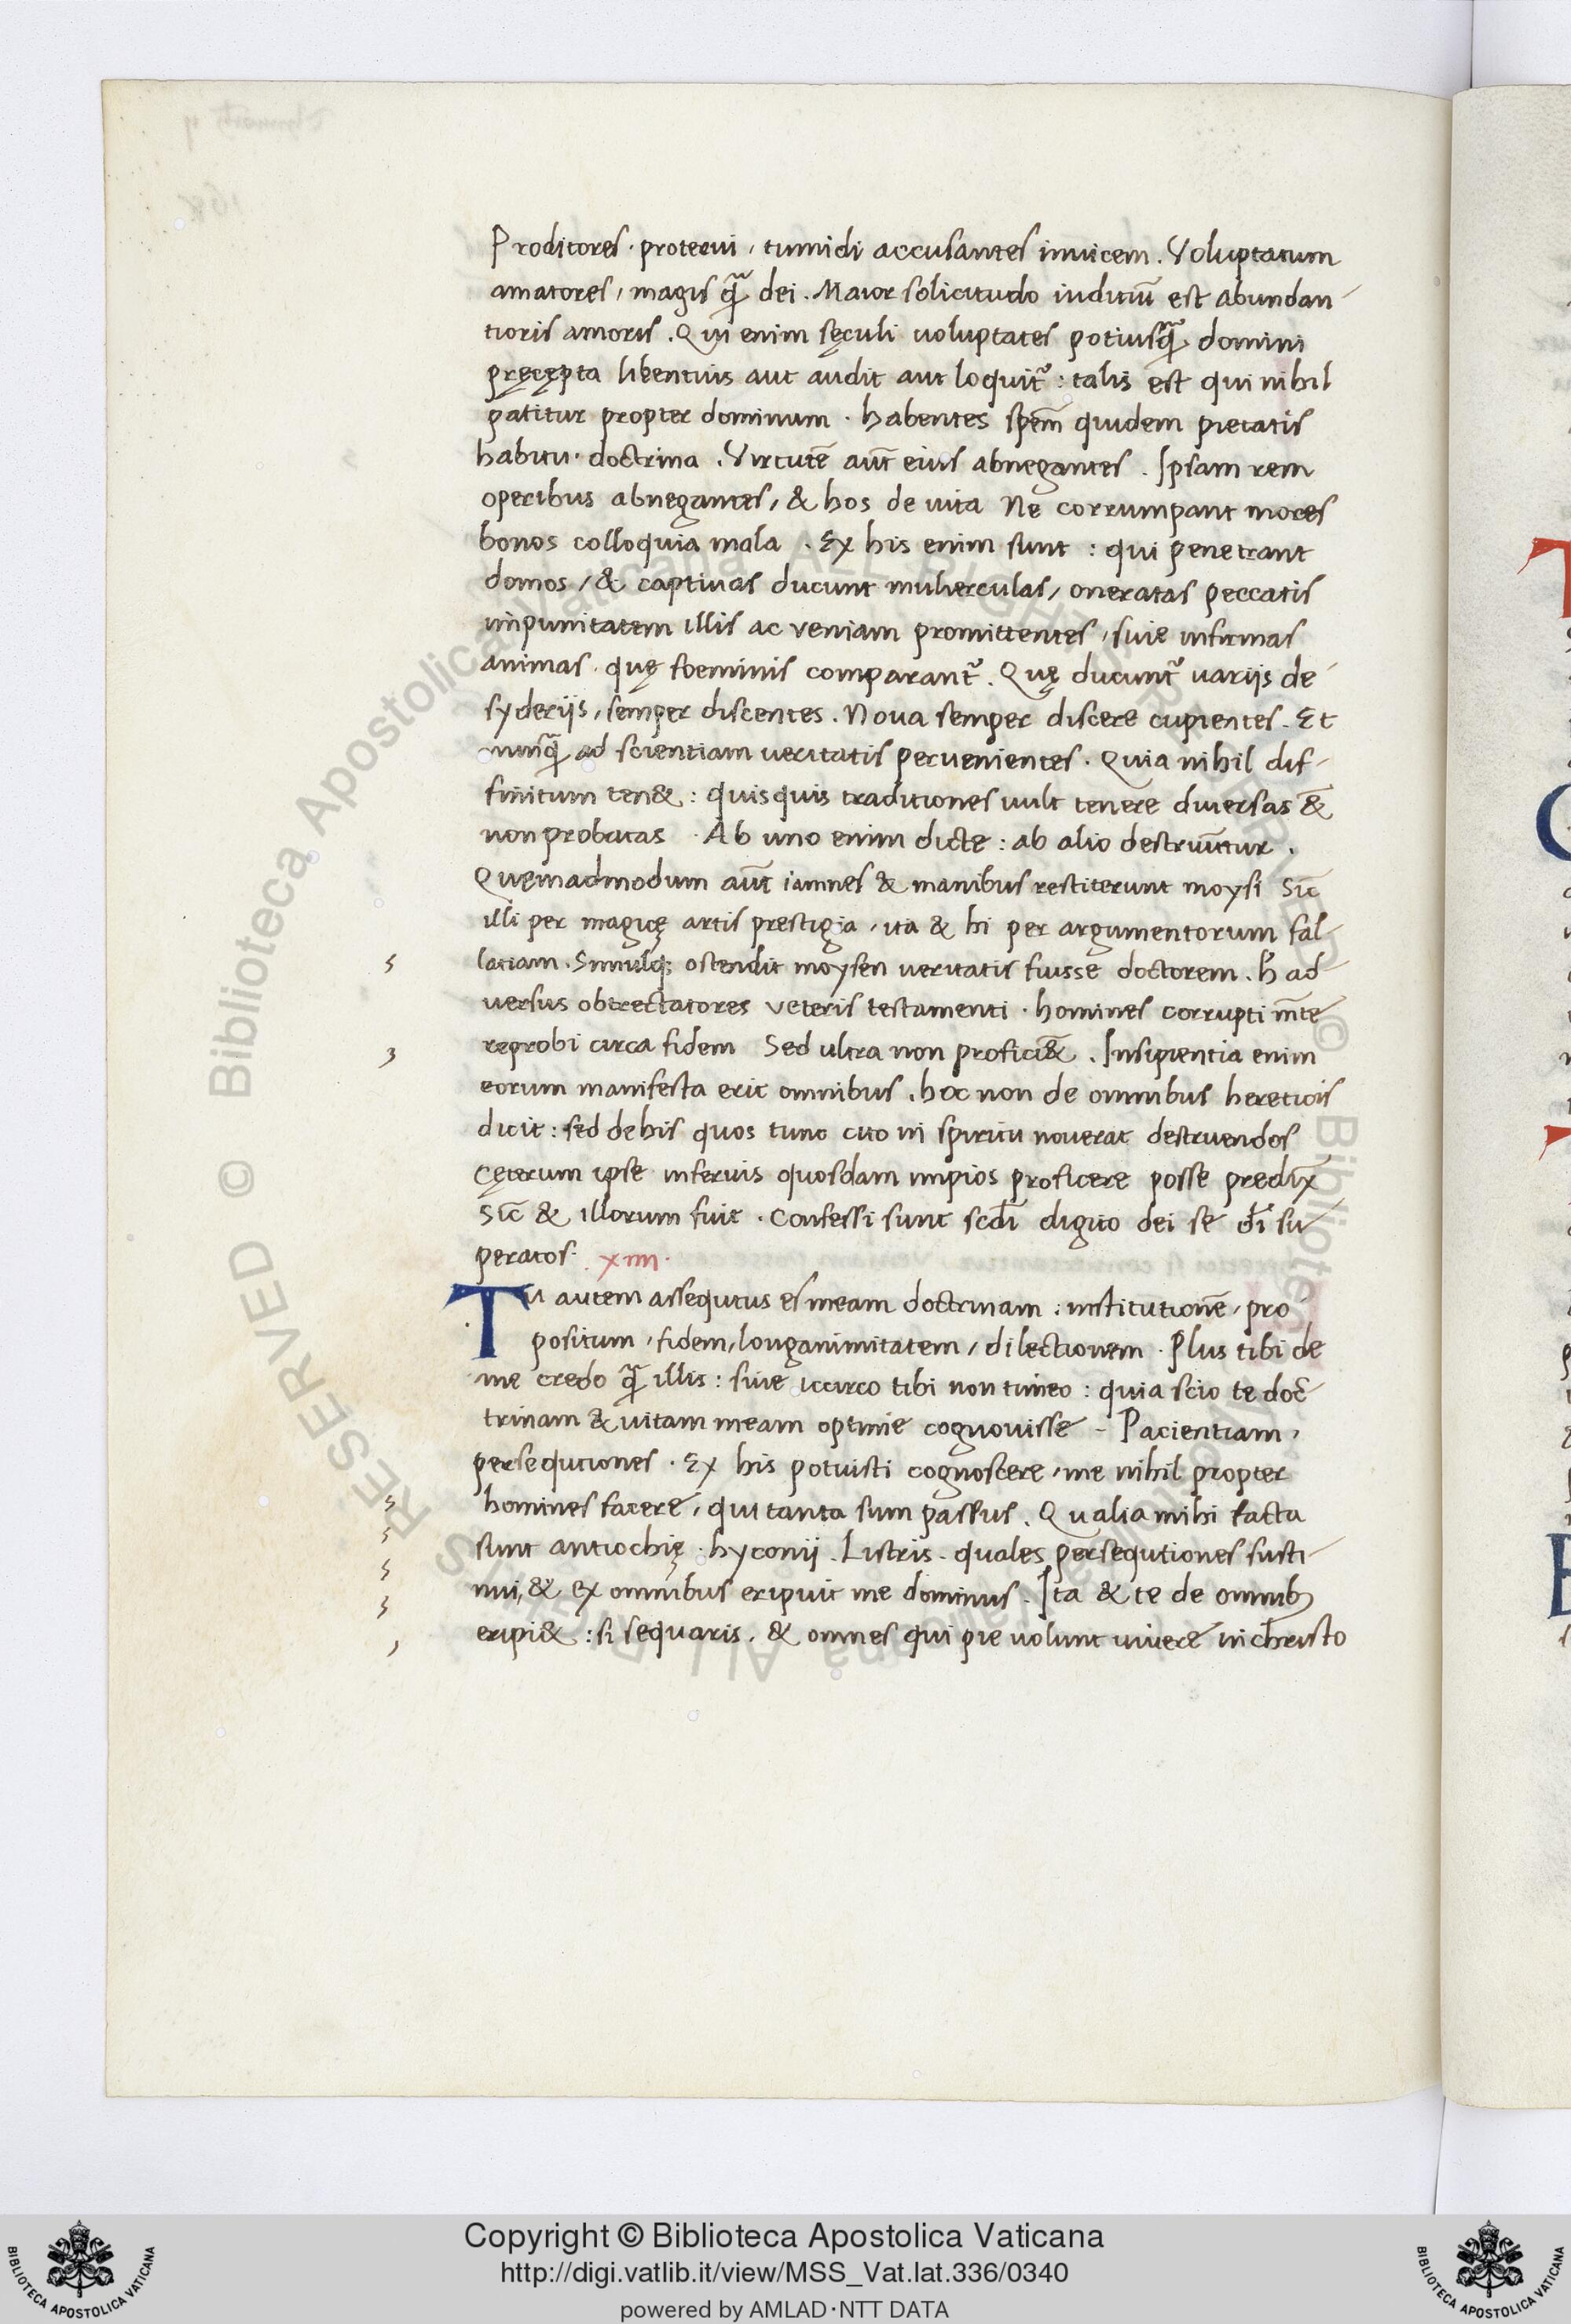 Proditores · proterui, tumidi accusantes inuicem. Voluptatum
amatores, magis q̃ dei. Maior solicitudo inditiũ est abundan-
tioris amoris. Qui enim sęculi uoluptates potiusq̃ domini
pręcępta libentius aut audit aut loquit᷑: talis est qui nihil
patitur propter dominum · habentes spem̃ quidem pietatis
habitu · doctrina. Virtutẽ aut̃ eius abnegantes. Ipsam rem
operibus abnegantes, & hos de uita Ne corrumpant mores
bonos colloquia mala. Ex his enim sunt: qui penetrant
domos, & captiuas ducunt mulierculas, oneratas peccatis
impunitatem illis ac veniam promittentes, siue infirmas
animas · quę foeminis comparant᷑. Quę ducunt᷑ uariis de-
syderiis, semper discentes. Noua semper discere cupientes. Et
nunq̃ ad scientiam ueritatis peruenientes. Quia nihil dif-
finitum ten&: quisquis traditiones uult tenere diuersas &̃
non probatas · Ab uno enim dicte: ab alio destruũtur.
Quemadmodum aut̃ iamnes & manibus restiterunt moysi Sic̃
illi per magicę artis prestigia, ita & hi per argumentorum fal-
laciam. Simulq; ostendit moysen ueritatis fuisse doctorem. h̃ ad
uersus obtrectatores veteris testamenti · homines corrupti m̃te
reprobi circa fidem Sed ultra non profici&̃. Insipientia enim
eorum manifesta erit omnibus. hoc non de omnibus hereticis
dicit: sed de his quos tunc cito in spiritu nouerat destruendos
Cęterum ipse inferius quosdam impios proficere posse predix̃
Sic̃ & illorum fuit. Confessi sunt scd̃i digito dei se d̃i su-
peratos. xiiii.
Tu autem assequutus es meam doctrinam: institutionẽ, pro-
positum, fidem, longanimitatem, dilectionem. Plus tibi de
me credo q̃ illis: siue iccirco tibi non timeo: quia scio te doc̃-
trinam & uitam meam optime cognouisse - Pacientiam,
persequtiones. Ex his potuisti cognoscere, me nihil propter
homines facere, qui tanta sum passus. Qualia mihi facta
sunt antiochię · hyconij. Listris. quales persequtiones susti-
nui, & ex omnibus eripuit me dominus. Ita & te de omnib;
eripi&: si sequaris. & omnes qui pie uolunt uiuere in christo
Copyright © Biblioteca Apostolica Vaticana
http://digi.vatlib.it/view/MSS_Vat.lat.336/0340
powered by AMLAD·NTT DATA
BIBLIOTECA APOSTOLICA VATICANA
BIBLIOTECA APOSTOLICA VATICANA